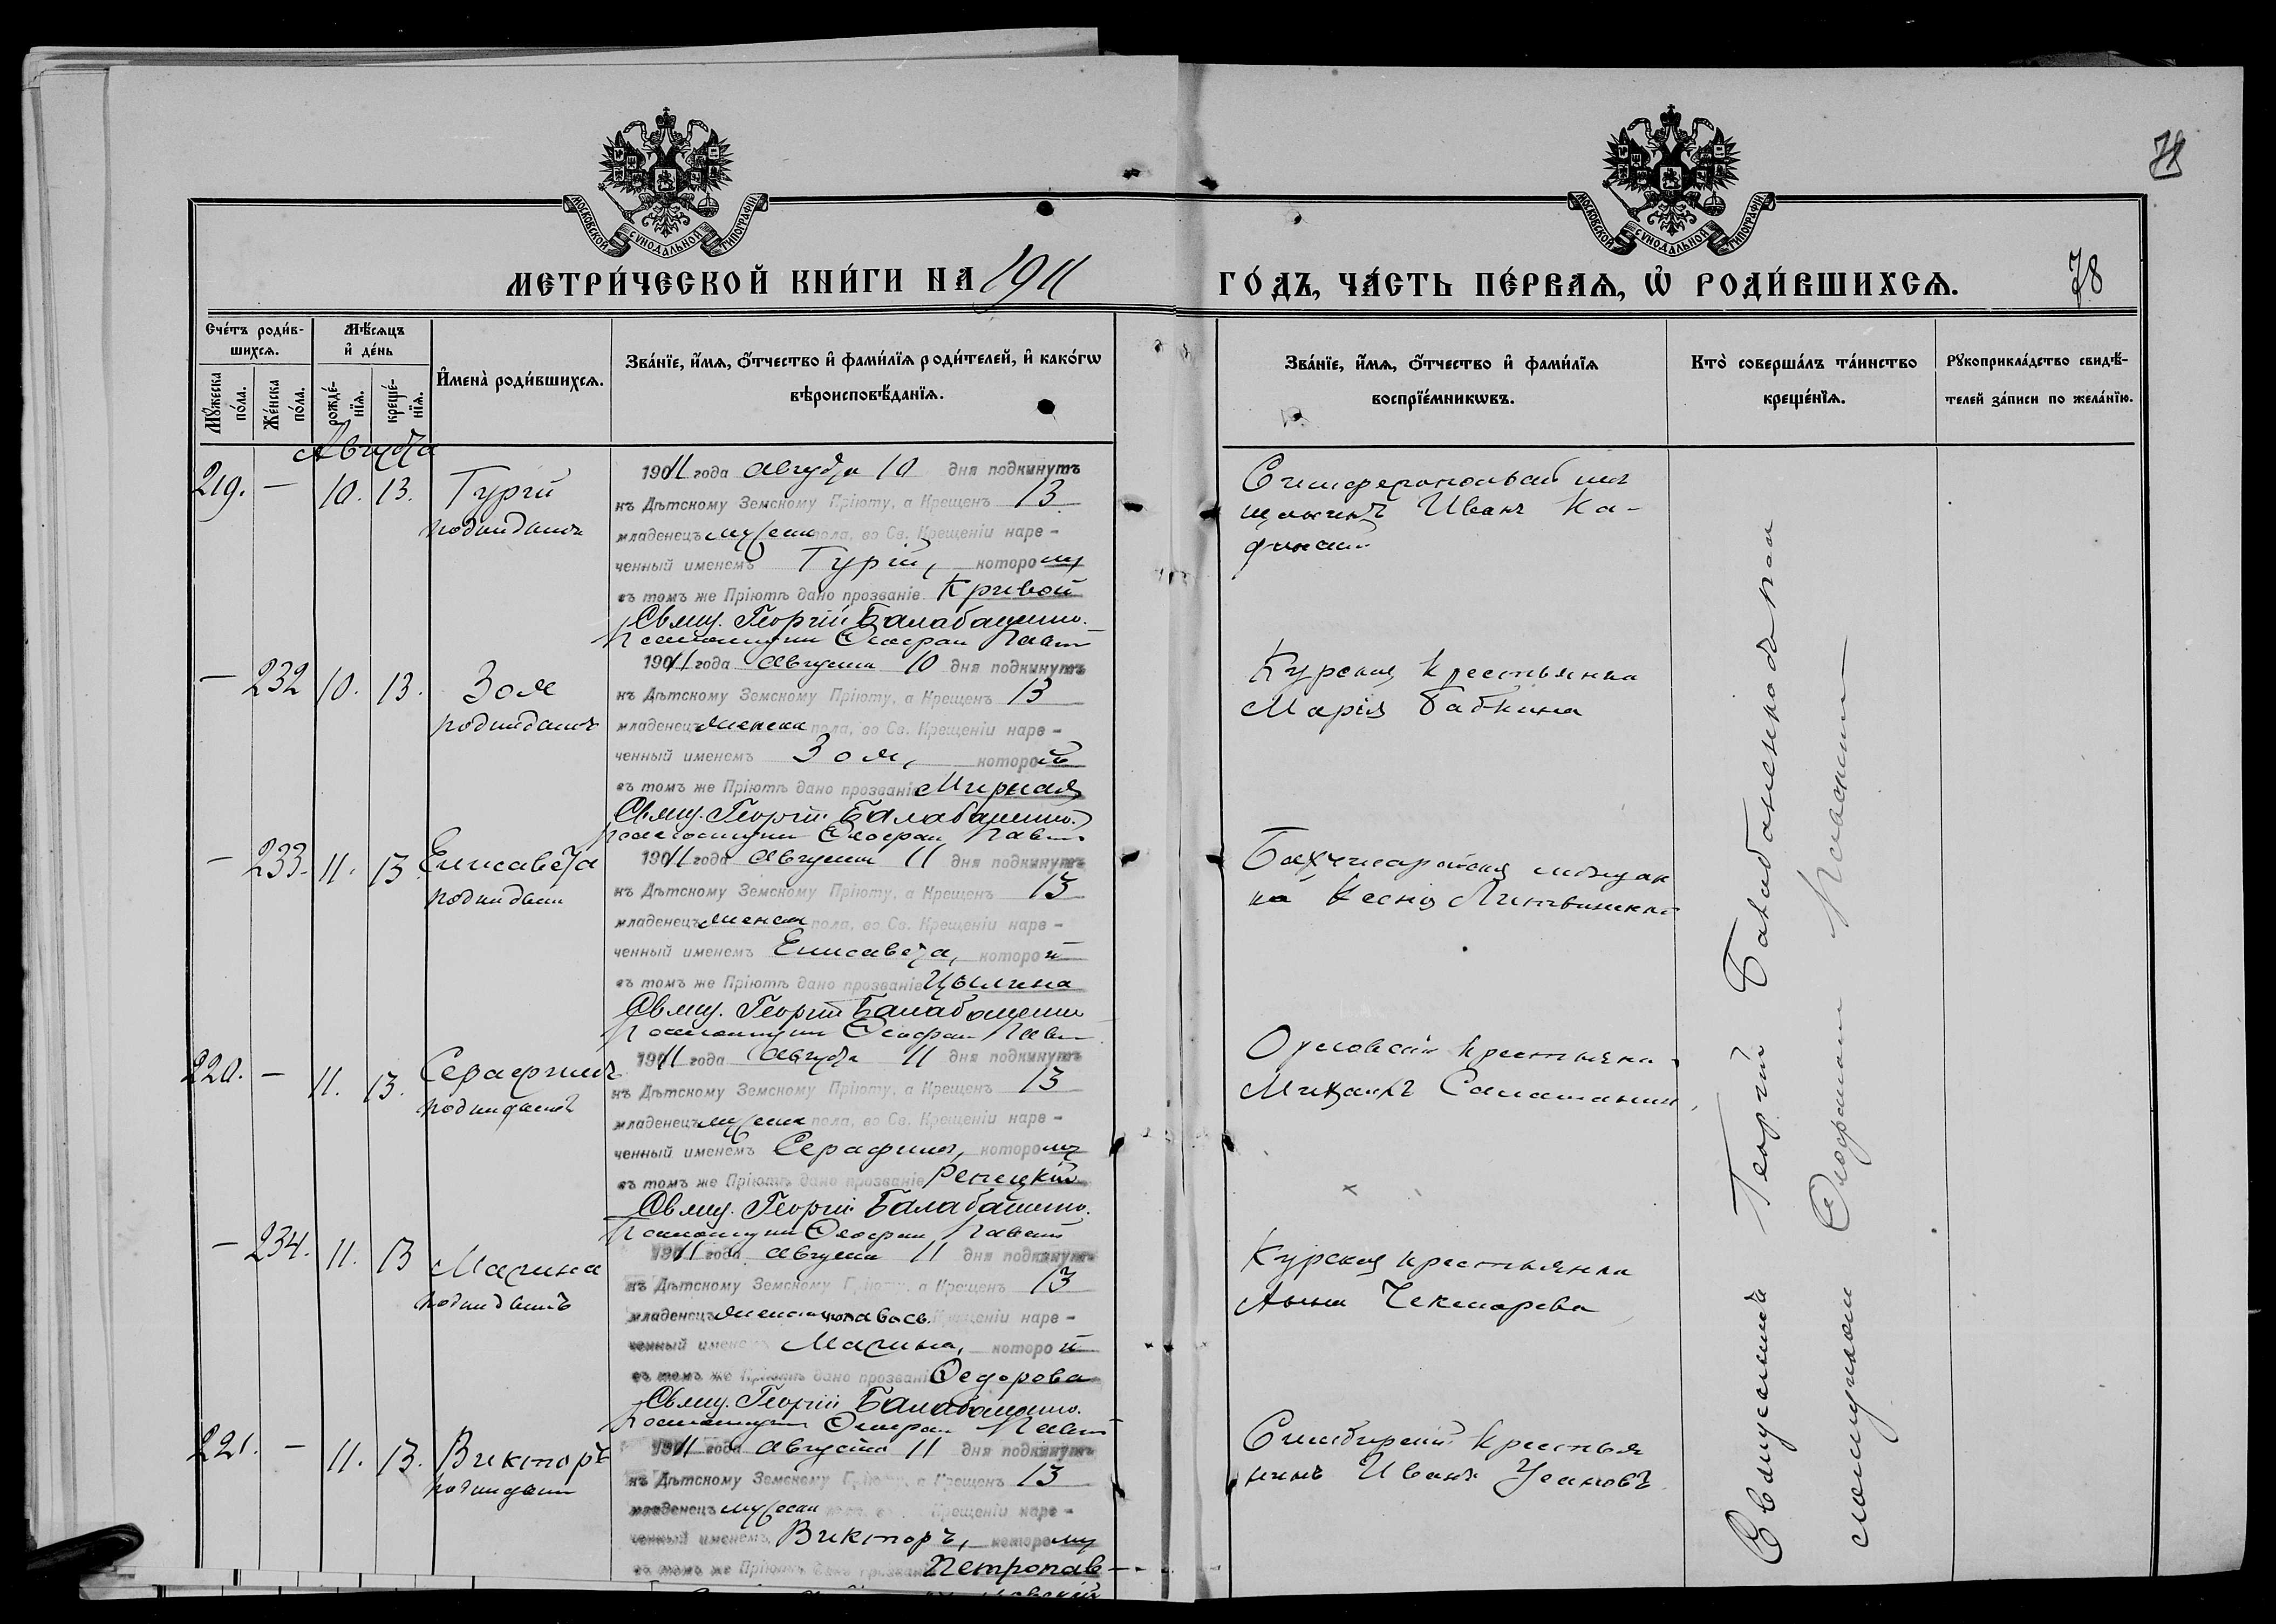 78
МОСКОВСКОЙ СѴНОДАЛЬНОЙ ТИПОГРАФІИ
МОСКОВСКОЙ СѴНОДАЛЬНОЙ ТИПОГРАФІИ
МЕТРИ́ЧЕСКОЙ КНИ́ГИ НА 1911
ГО́ДЪ, ЧА́СТЬ ПЕ́РВАѦ, Ѡ҆ РОДИ́ВШИХСѦ.
78
Сче́тъ роди́в-
шихсѧ.
Мѣ́сѧцъ
и҆ де́нь
И҆мена̀ роди́вшихсѧ.
Зва́нїе, и҆́мѧ, ѻ҆́тчество и҆ фами́лїѧ роди́телей, и҆ како́гѡ
вѣроисповѣ́данїѧ.
Мꙋ́жеска
по́ла.
Же́нска
по́ла.
рожде́-
нїѧ.
креще́-
нїѧ.
Зва́нїе, и҆́мѧ, ѻ҆́тчество и҆ фами́лїѧ
воспрїе́мникѡвъ.
Кто̀ соверша́лъ та́инство
креще́нїѧ.
Рꙋкоприкла́дство свидѣ́-
телей за́писи по жела́нїю.
Августа
219. — 10. 13. Турій
подкидышъ
1911 года Августа 10 дня подкинутъ
къ Дѣтскому Земскому Пріюту, а Крещенъ 13
младенецъ мужеска пола, во Св. Крещеніи наре-
ченный именемъ Турій, которому
въ томъ же Пріютѣ дано прозваніе Кривой
Свящ. Георгій Балабаненко.
Псаломщикъ Ѳеофан
Симферопольскій мѣ
щанинъ Иванъ Ка-
— 232 10. 13. Зоя
подкидышъ
1911 года Августа 10 дня подкинутъ
къ Дѣтскому Земскому Пріюту, а Крещенъ 13
младенецъ женска пола, во Св. Крещеніи наре-
ченный именемъ Зоя, которой
въ томъ же Пріютѣ дано прозваніе Мирная
Свящ. Георгій Балабаненко.
Псаломщикъ Ѳеофан
Курская крестьянка
Марія Бабкина
— 233. 11. 13 Елисавета
подкидыш
1911 года Августа 11 дня подкинутъ
къ Дѣтскому Земскому Пріюту, а Крещенъ 13
младенецъ женска пола, во Св. Крещеніи наре-
ченный именемъ Елисавета, которой
въ томъ же Пріютѣ дано прозваніе Цылина
Свящ. Георгій Балабаненко
Псаломщикъ Ѳеофан
Бахчисарайская мѣщан
ка Ксенія
220. — 11. 13. Серафимъ
подкидышъ
1911 года Августа 11 дня подкинутъ
къ Дѣтскому Земскому Пріюту, а Крещенъ 13
младенецъ мужеска пола, во Св. Крещеніи наре-
ченный именемъ Серафимъ, которому
въ томъ же Пріютѣ дано прозваніе Репецкій
Свящ. Георгій Балабаненко.
Псаломщикъ Ѳеофан
Орловскій крестьянин
Михаилъ
— 234. 11. 13 Марина
подкидышъ
1911 года Августа 11 дня подкинутъ
къ Дѣтскому Земскому Пріюту, а Крещенъ 13
младенецъ женска пола во св. Крещеніи наре-
ченный именемъ Марина, которой
въ томъ же Пріютѣ дано прозваніе Ѳедорова
Свящ. Георгій Балабаненко.
Псаломщикъ Ѳеофан
Курская крестьянка
Анна Чекмарева
221. — 11. 13. Викторъ
подкидыш
1911 года Августа 11 дня подкинутъ
къ Дѣтскому Земскому Пріюту, а Крещенъ 13
младенецъ мужеска пола, во Св. Крещеніи наре-
ченный именемъ Викторъ, которому
въ томъ же Пріютѣ дано прозваніе Петропав-
ловскій
Симбирскій крестья
нинъ Иванъ Усановъ
Священникъ Георгій Балабаненко съ
псаломщикомъ Ѳеофаномъ